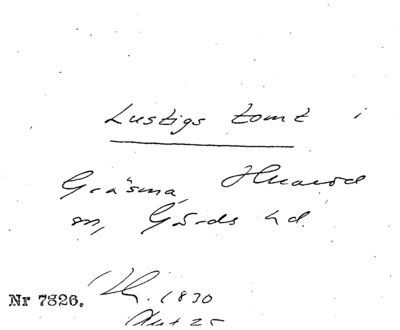 Lustigs tomt i
Gräsma, Huaröd
sn, Gärds hd.
Nr 7826. 1830
Okt 25